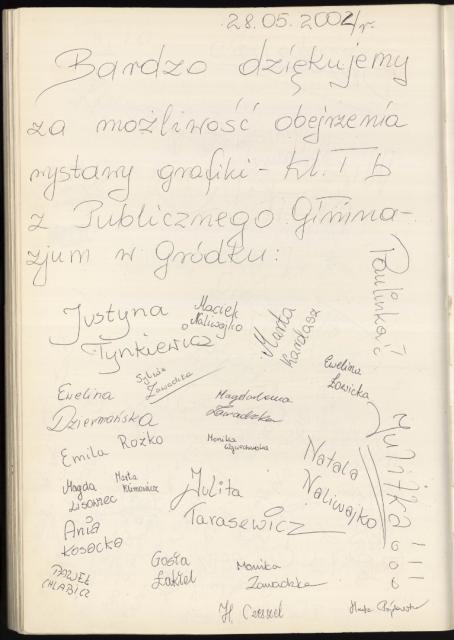 28.05.2002/r.
Bardzo dziękujemy
za możliwość obejrzenia
wystawy grafiki - kl. I b
z Publicznego Gimna-
zjum w Gródku:
Paulinka
Justyna
Tynkiewicz
Maciek
Naliwajko
Marta
Kardasz
Ewelina
Łowicka
Sylwia
Zawadzka
Ewelina
Dziermańska
Magdalena
Zawadzka
Julitka
Emila Rożko
Monika
Natala
Naliwajko
Magda
Lisowiec
Marta
Klimowicz
Julita
Tarasewicz
Ania
Kosacka
PAWEŁ
CHLABICZ
Gosia
Monika
Zawadzka
H.